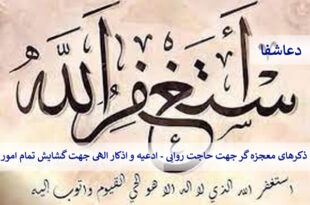 دعاشفا
أستغفر الله
ذکرهای معجزه گر جهت حاجت روایی - ادعیه و اذکار الهی جهت گشایش تمام امور
استغفر الله الذي لا اله الا هو الحي القيوم واتوب اليه